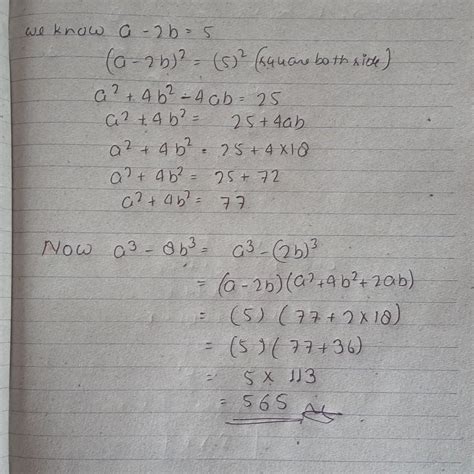 we know a - 2b = 5
(a - 2b)² = (5)² (square both side)
a² + 4b² - 4ab = 25
a² + 4b² = 25 + 4ab
a² + 4b² = 25 + 4×18
a² + 4b² = 25 + 72
a² + 4b² = 77
Now a³ - 8b³ = a³ - (2b)³
= (a - 2b)(a² + 4b² + 2ab)
= (5) (77 + 2×18)
= (5) (77 + 36)
= 5 × 113
= 565